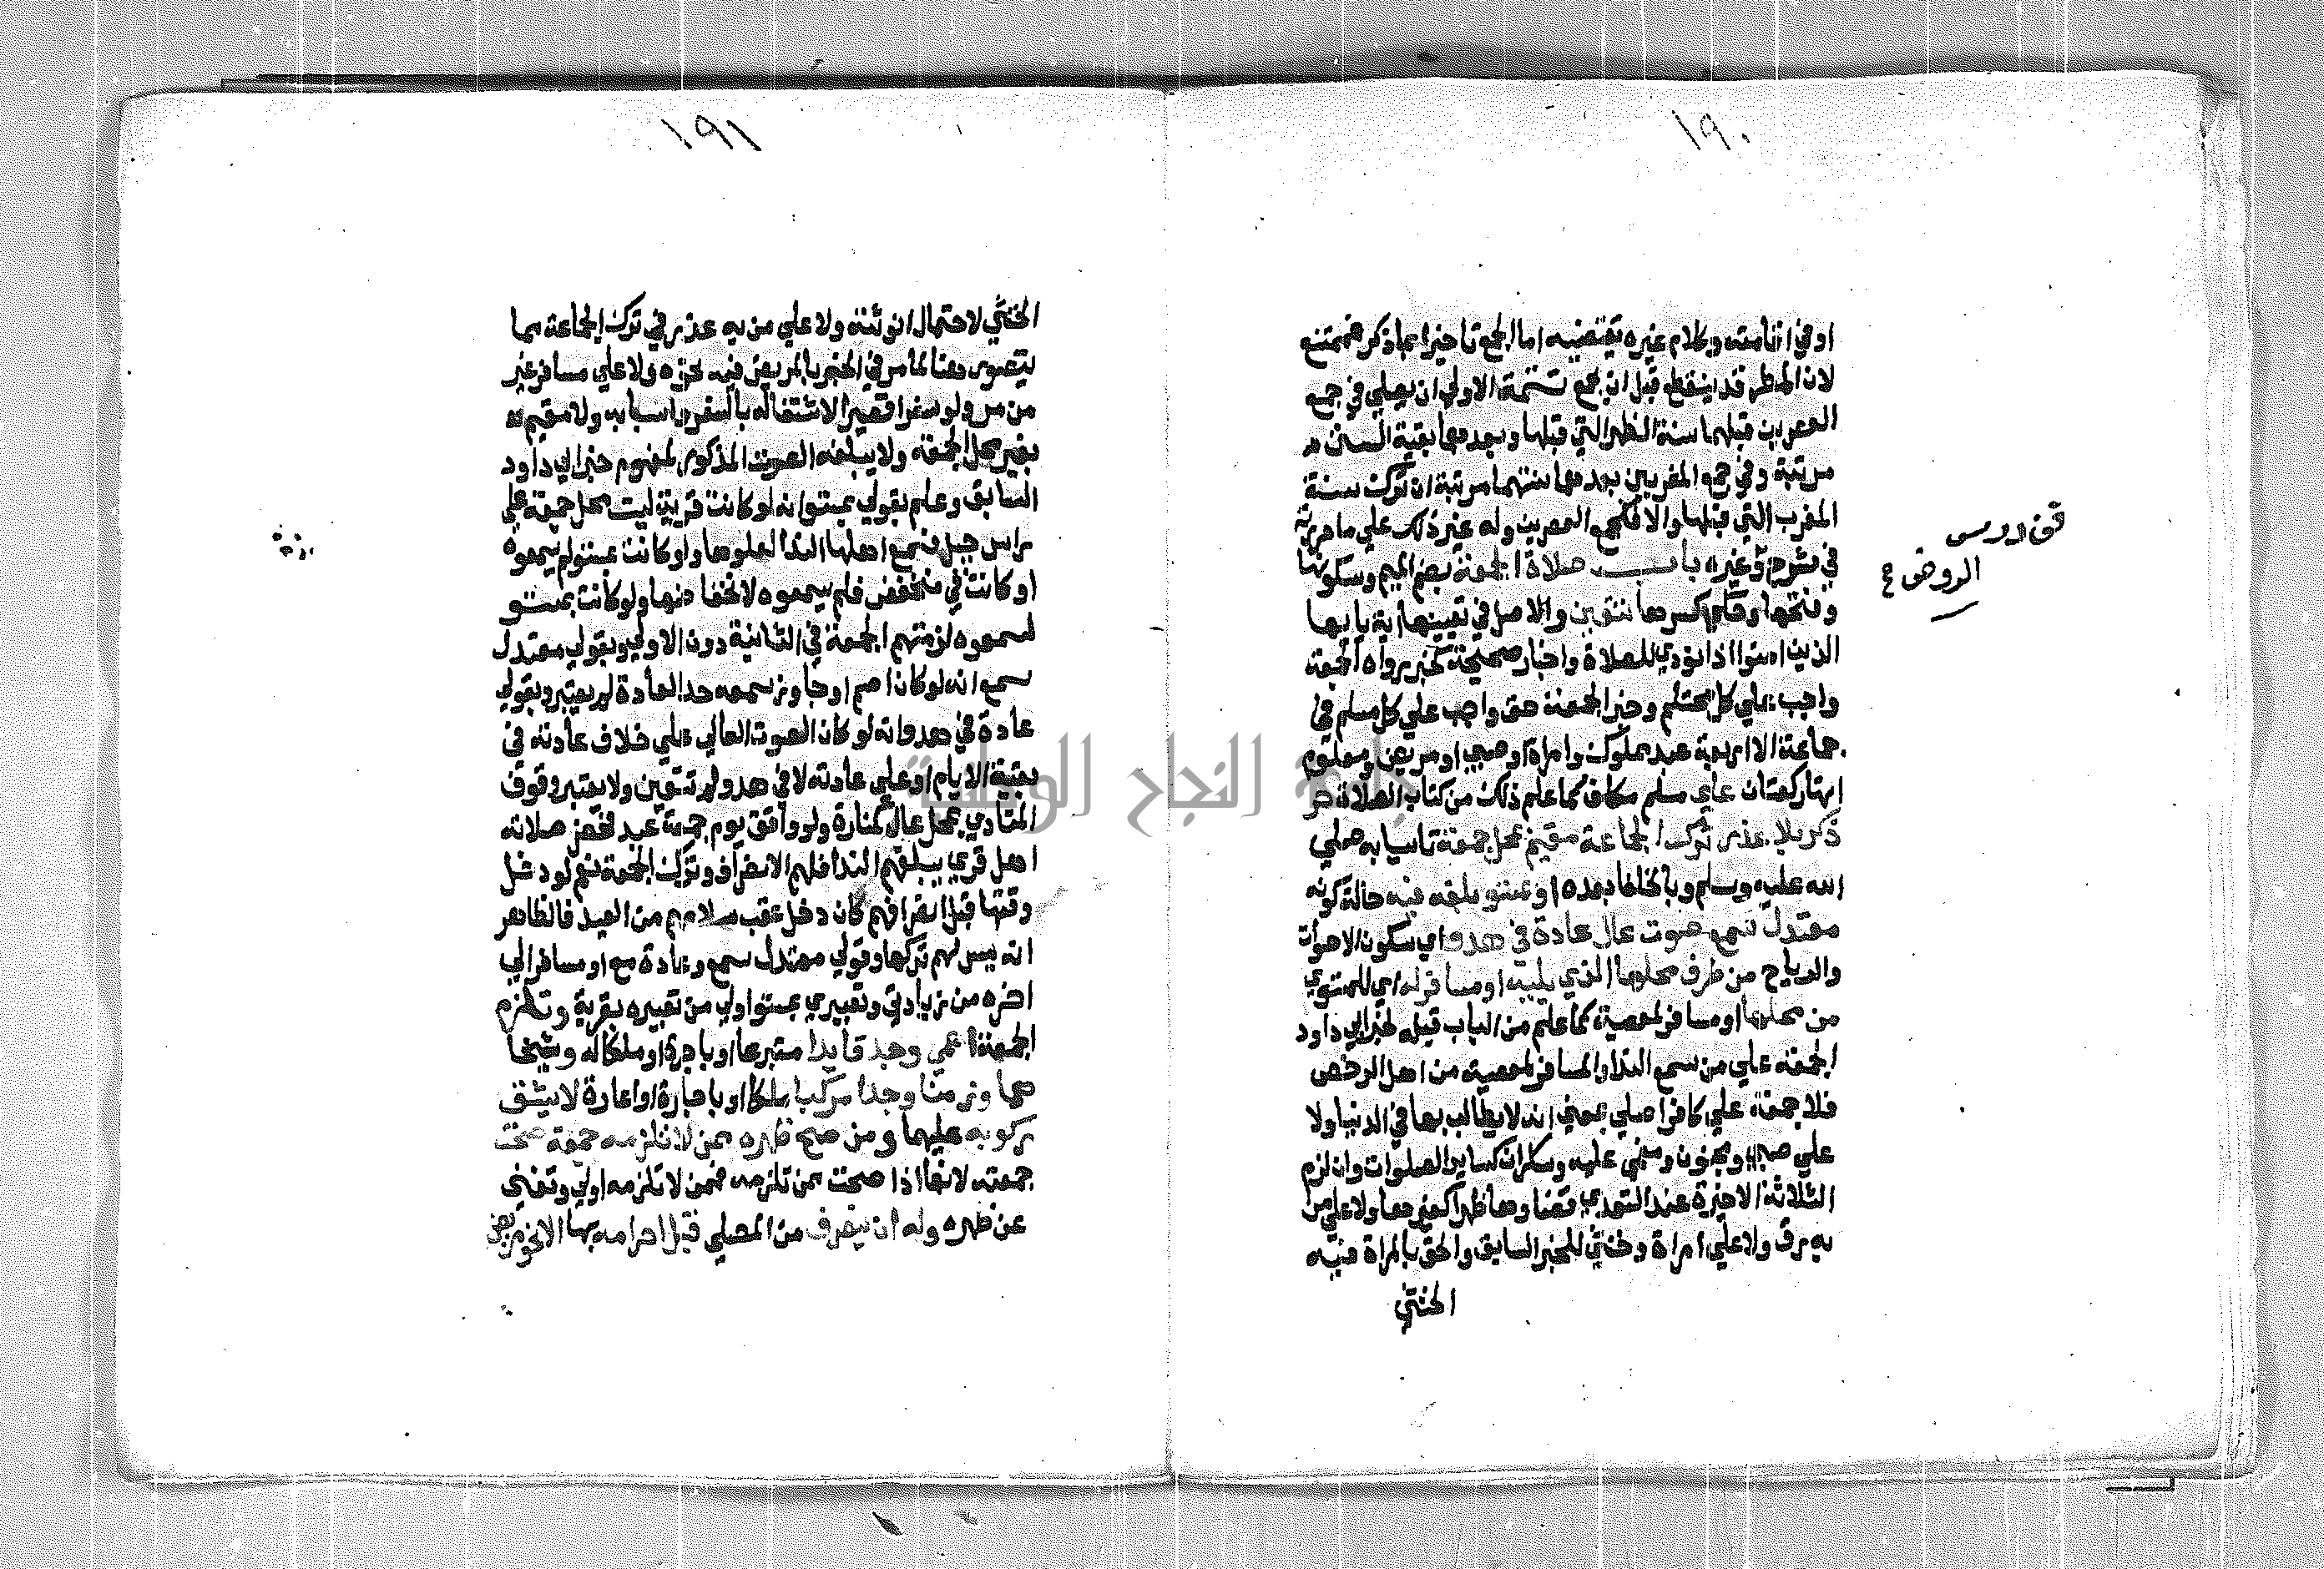 ١٩٠
او في اثنائهته وبكلام غيره تقتضيه اما الجمع تاخيرا بما ذكر فممتنع
لان المطر قد ينقطع قبل ان يجمع تتمة الاولي ان يصلي في جمع
العصرين قبلهما سنة الظهر التي قبلها وبعدهما بقية السنن
مرتبة وفي جمع المغربين بعدهما سنتهما مرتبة ان ترك سنة
المغرب التي قبلها والا فكجمع العصرين وله غير ذلك علي ما حررته
في شرح وغيره باب صلاة الجمعة بضم الميم وسكونها
وفتحها وحكي كسرها والاصل في تعيينها اية يا ايها
الذين امنوا اذا نودي للصلاة واخبار صحيحة كخبر رواه الجمعة
واجب علي كل محتلم وخبر الجمعة حق واجب علي كل مسلم في
جماعة الا اربعة عبد مملوك وامراة او صبي او مريض ومعلوم
انها ركعتان علي مسلم مكلف كما علم ذلك من كتاب الصلاة حر
ذكر بلا عذر ترك الجماعة مقيم بمحل جمعة تاسيا به صلي
الله عليه وسلم وبالخلفا بعده او بمستو بلغه فيه حالة كونه
معتدل سمع صوت عال عادة في هدو اي سكون الاصوات
والرياح من طرف محلها الذي يليه او مسافر له اي للمستوي
من محلها او مسافر لمعصية كما علم من الباب قبله لخبر ابي داود
الجمعة علي من سمع الندا والمسافر لمعصية من اهل الرخص
فلا جمعة علي كافر اصلي بمعني انه لا يطالب بها في الدنيا ولا
علي صبي ومجنون ومغمي عليه وسكران كساير الصلوات وان لزم
الثلاثة الاخيرة عند التعدي قضاوها ظهرا كغيرها ولا علي من
به رق ولا علي امراة وخنثي للخبر السابق والحق بالمراة فيه
الخنثي
الروض
١٩١
الخنثي لاحتمال انوثته ولا علي من به عذر في ترك الجماعة مما
يتصور هنا لما مر في الخبر بالمريض فيه نحوه ولا علي مسافر غير
من مر ولو سفرا قصيرا لاشتغاله بالسفر واسبابه ولا مقيم
بغير محل الجمعة ولا يبلغه الصوت المذكور لمفهوم خبر ابي داود
السابق وعلم بقولي بمستو انه لو كانت قرية ليست محل جمعة علي
راس جبل فسمع اهلها الندا لعلوها ولو كانت بمستو لم يسمعوه
او كانت في منخفض فلم يسمعوه لانخفاضها ولو كانت بمستو
لسمعوه لزمتهم الجمعة في الثانية دون الاولي وبقولي معتدل
سمع انه لو كان اصم او جاوز سمعه حد العادة لم يعتبر وبقولي
عادة في هدو انه لو كان الصوت العالي علي خلاف عادته في
بقية الايام او علي عادته لا في هدو لم تتعين ولا يعتبر وقوف
المنادي بمحل عال كمنارة ولو وافق يوم جمعة عيد فحضر صلاته
اهل قري يبلغهم الندا فلهم الانصراف وترك الجمعة نعم لو دخل
وقتها قبل انصرافهم كان دخل عقب سلامهم من العيد فالظاهر
انه ليس لهم تركها وقولي معتدل سمع وعادة مع او مسافر الي
اخره من زيادتي وتعبيري بمستو اولي من تعبيره بقرية وتلزم
الجمعة اعمي وجد قايدا متبرعا او باجرة او ملكا له وشيخا
هما وزمنا وجدا مركبا ملكا او باجارة او اعارة لا يشق
ركوبه عليهما ومن صح ظهره ممن لا تلزمه جمعة صحت
جمعته لانها اذا صحت ممن تلزمه فممن لا تلزمه اولي وتغني
عن ظهره وله ان ينصرف من المصلي قبل احرامه بها الا نحو مريض